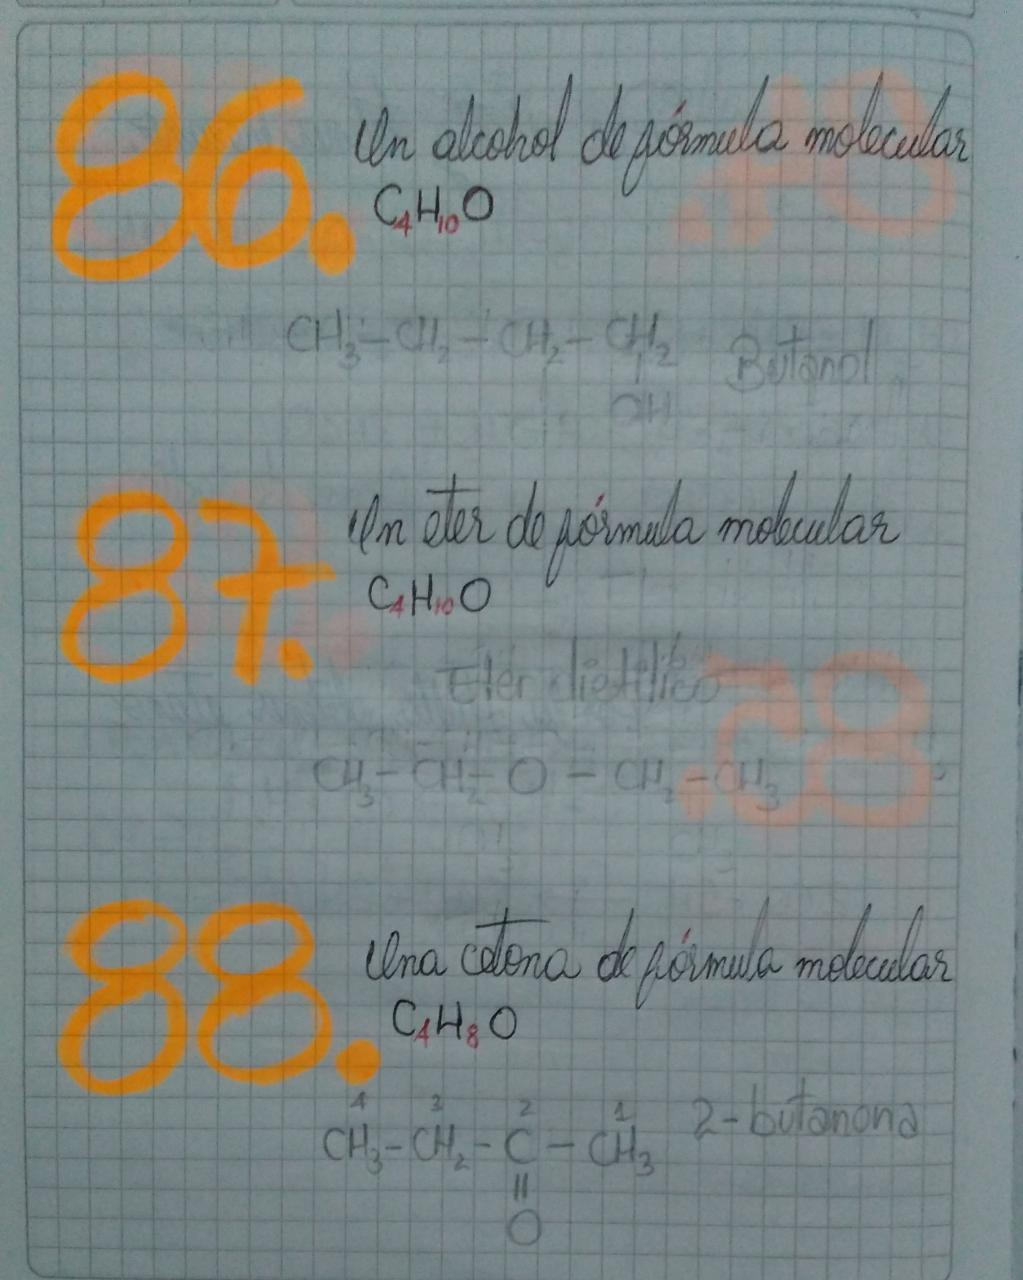 86. Un alcohol de fórmula molecular
C4H10O
CH3-CH2-CH2-CH2 Butanol
OH
87. Un éter de fórmula molecular
C4H10O
Eter dietílico
CH3-CH2-O-CH2-CH3
88. Una cetona de fórmula molecular
C4H8O
4 3 2 1
CH3-CH2-C-CH3 2-butanona
||
O